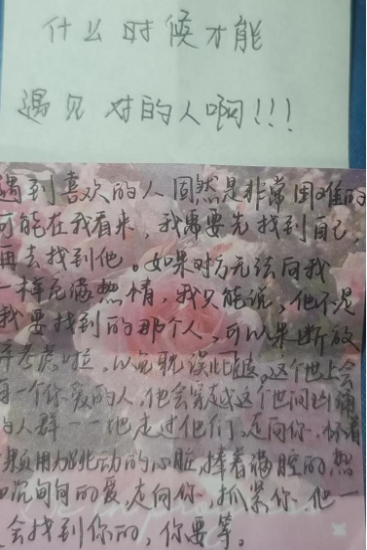 什么时候才能
遇见对的人啊!!!
遇到喜欢的人固然是非常困难的
可能在我看来,我需要先找到自己,
再去找到他。如果对方无法向我
一样充满热情,我只能说,他不是
我要找到的那个人,可以果断放
弃考虑啦,以免耽误彼此。这个世上会
有一个你爱的人,他会穿越这个世间汹涌
的人群一一地走过他们,走向你,怀着
一颗用力跳动的心脏,捧着满腔的热
和沉甸甸的爱,走向你,抓紧你,他一
会找到你的,你要等。